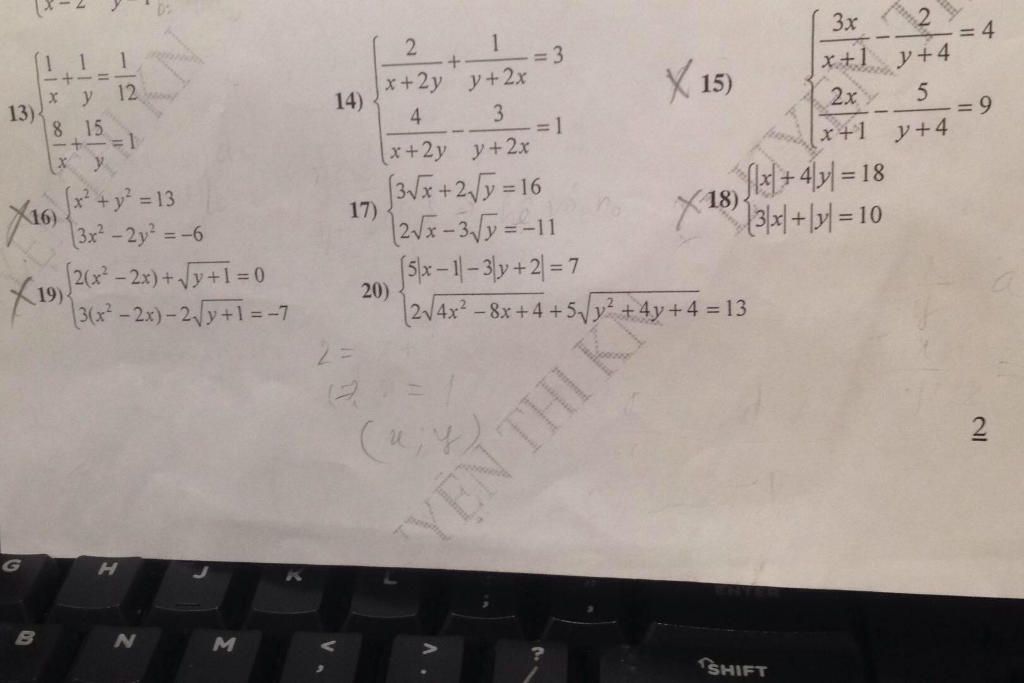 13) { 1/x + 1/y = 1/12
8/x + 15/y = 1
14) { 2/(x+2y) + 1/(y+2x) = 3
4/(x+2y) − 3/(y+2x) = 1
15) { 3x/(x+1) − 2/(y+4) = 4
2x/(x+1) − 5/(y+4) = 9
16) { x² + y² = 13
3x² − 2y² = −6
17) { 3√x + 2√y = 16
2√x − 3√y = −11
18) { |x| + 4|y| = 18
3|x| + |y| = 10
19) { 2(x² − 2x) + √(y+1) = 0
3(x² − 2x) − 2√(y+1) = −7
20) { 5|x − 1| − 3|y + 2| = 7
2√(4x² − 8x + 4) + 5√(y² + 4y + 4) = 13
2 =
= 1
(x; y)
YỆN THI KN
2
G H J K L ; ENTER
B N M < , > . ? / SHIFT